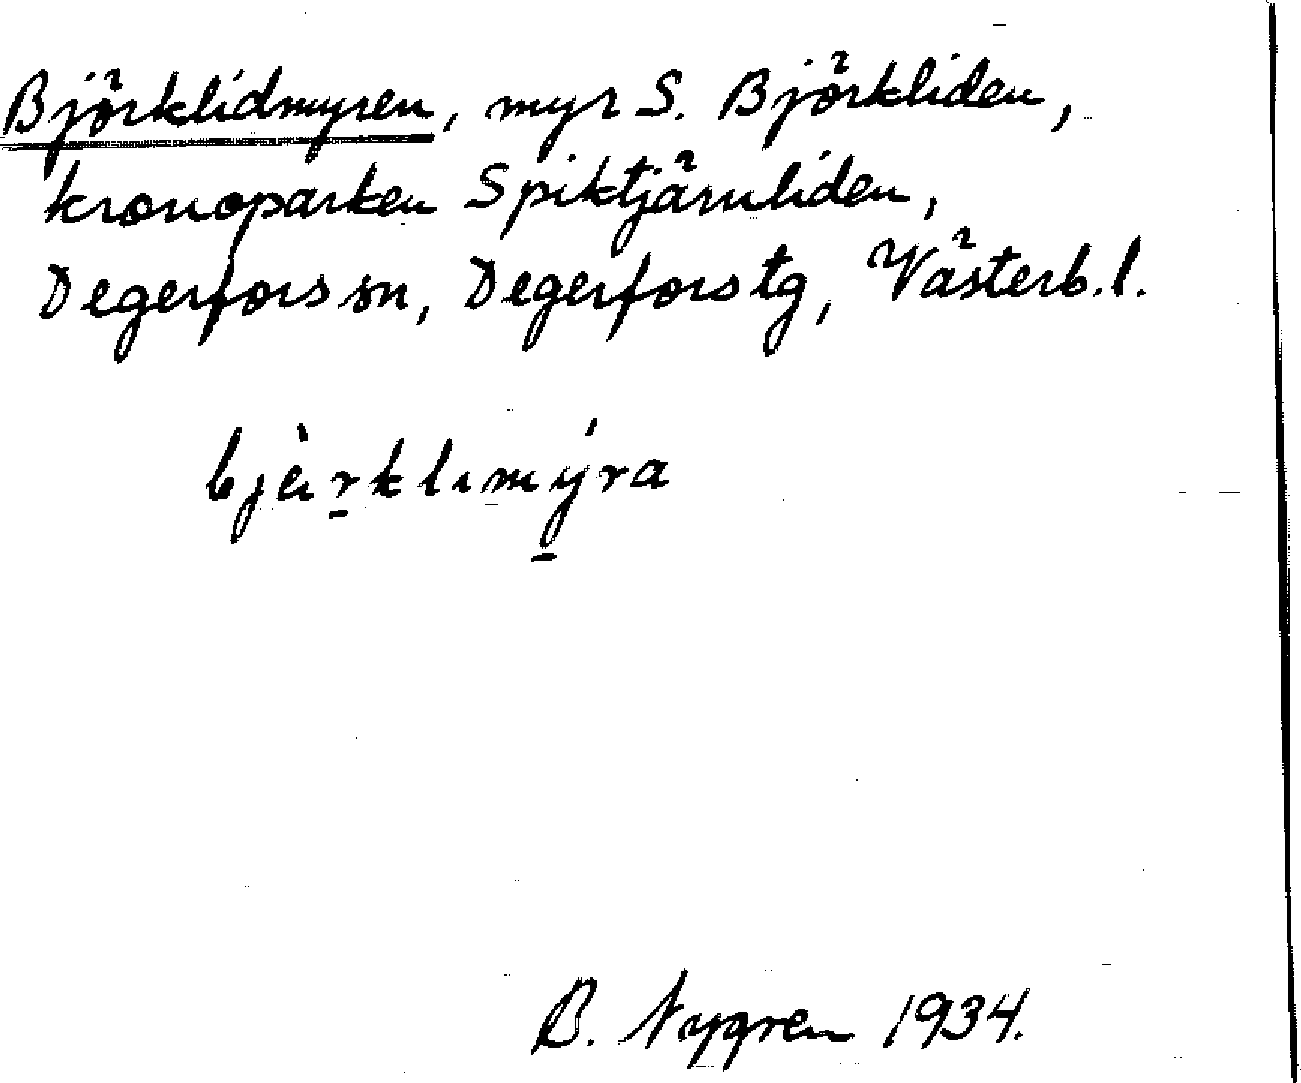 Björklidmyren, myr S. Björkliden,
kronoparken Spiktjärnliden,
Degerfors sn, Degerfors tg, Västerb. l.
bjèrklimýra
B. Nygren 1934.